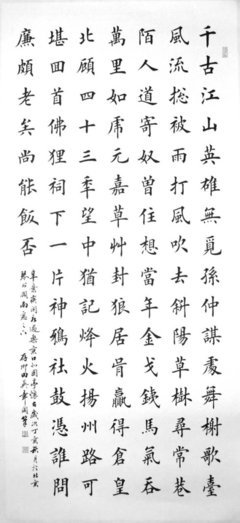 千古江山英雄無覓孫仲謀處舞榭歌臺
風流総被雨打風吹去斜陽草樹尋常巷
陌人道寄奴曾住想當年金戈鐵馬氣吞
萬里如虎元嘉草艸封狼居胥贏得倉皇
北顧四十三秊望中猶記烽火揚州路可
堪回首佛狸祠下一片神鴉社鼓憑誰問
廉頗老矣尚能飯否
辛棄疾詞永遇樂京口北固亭懷古歲次丁亥月於北京